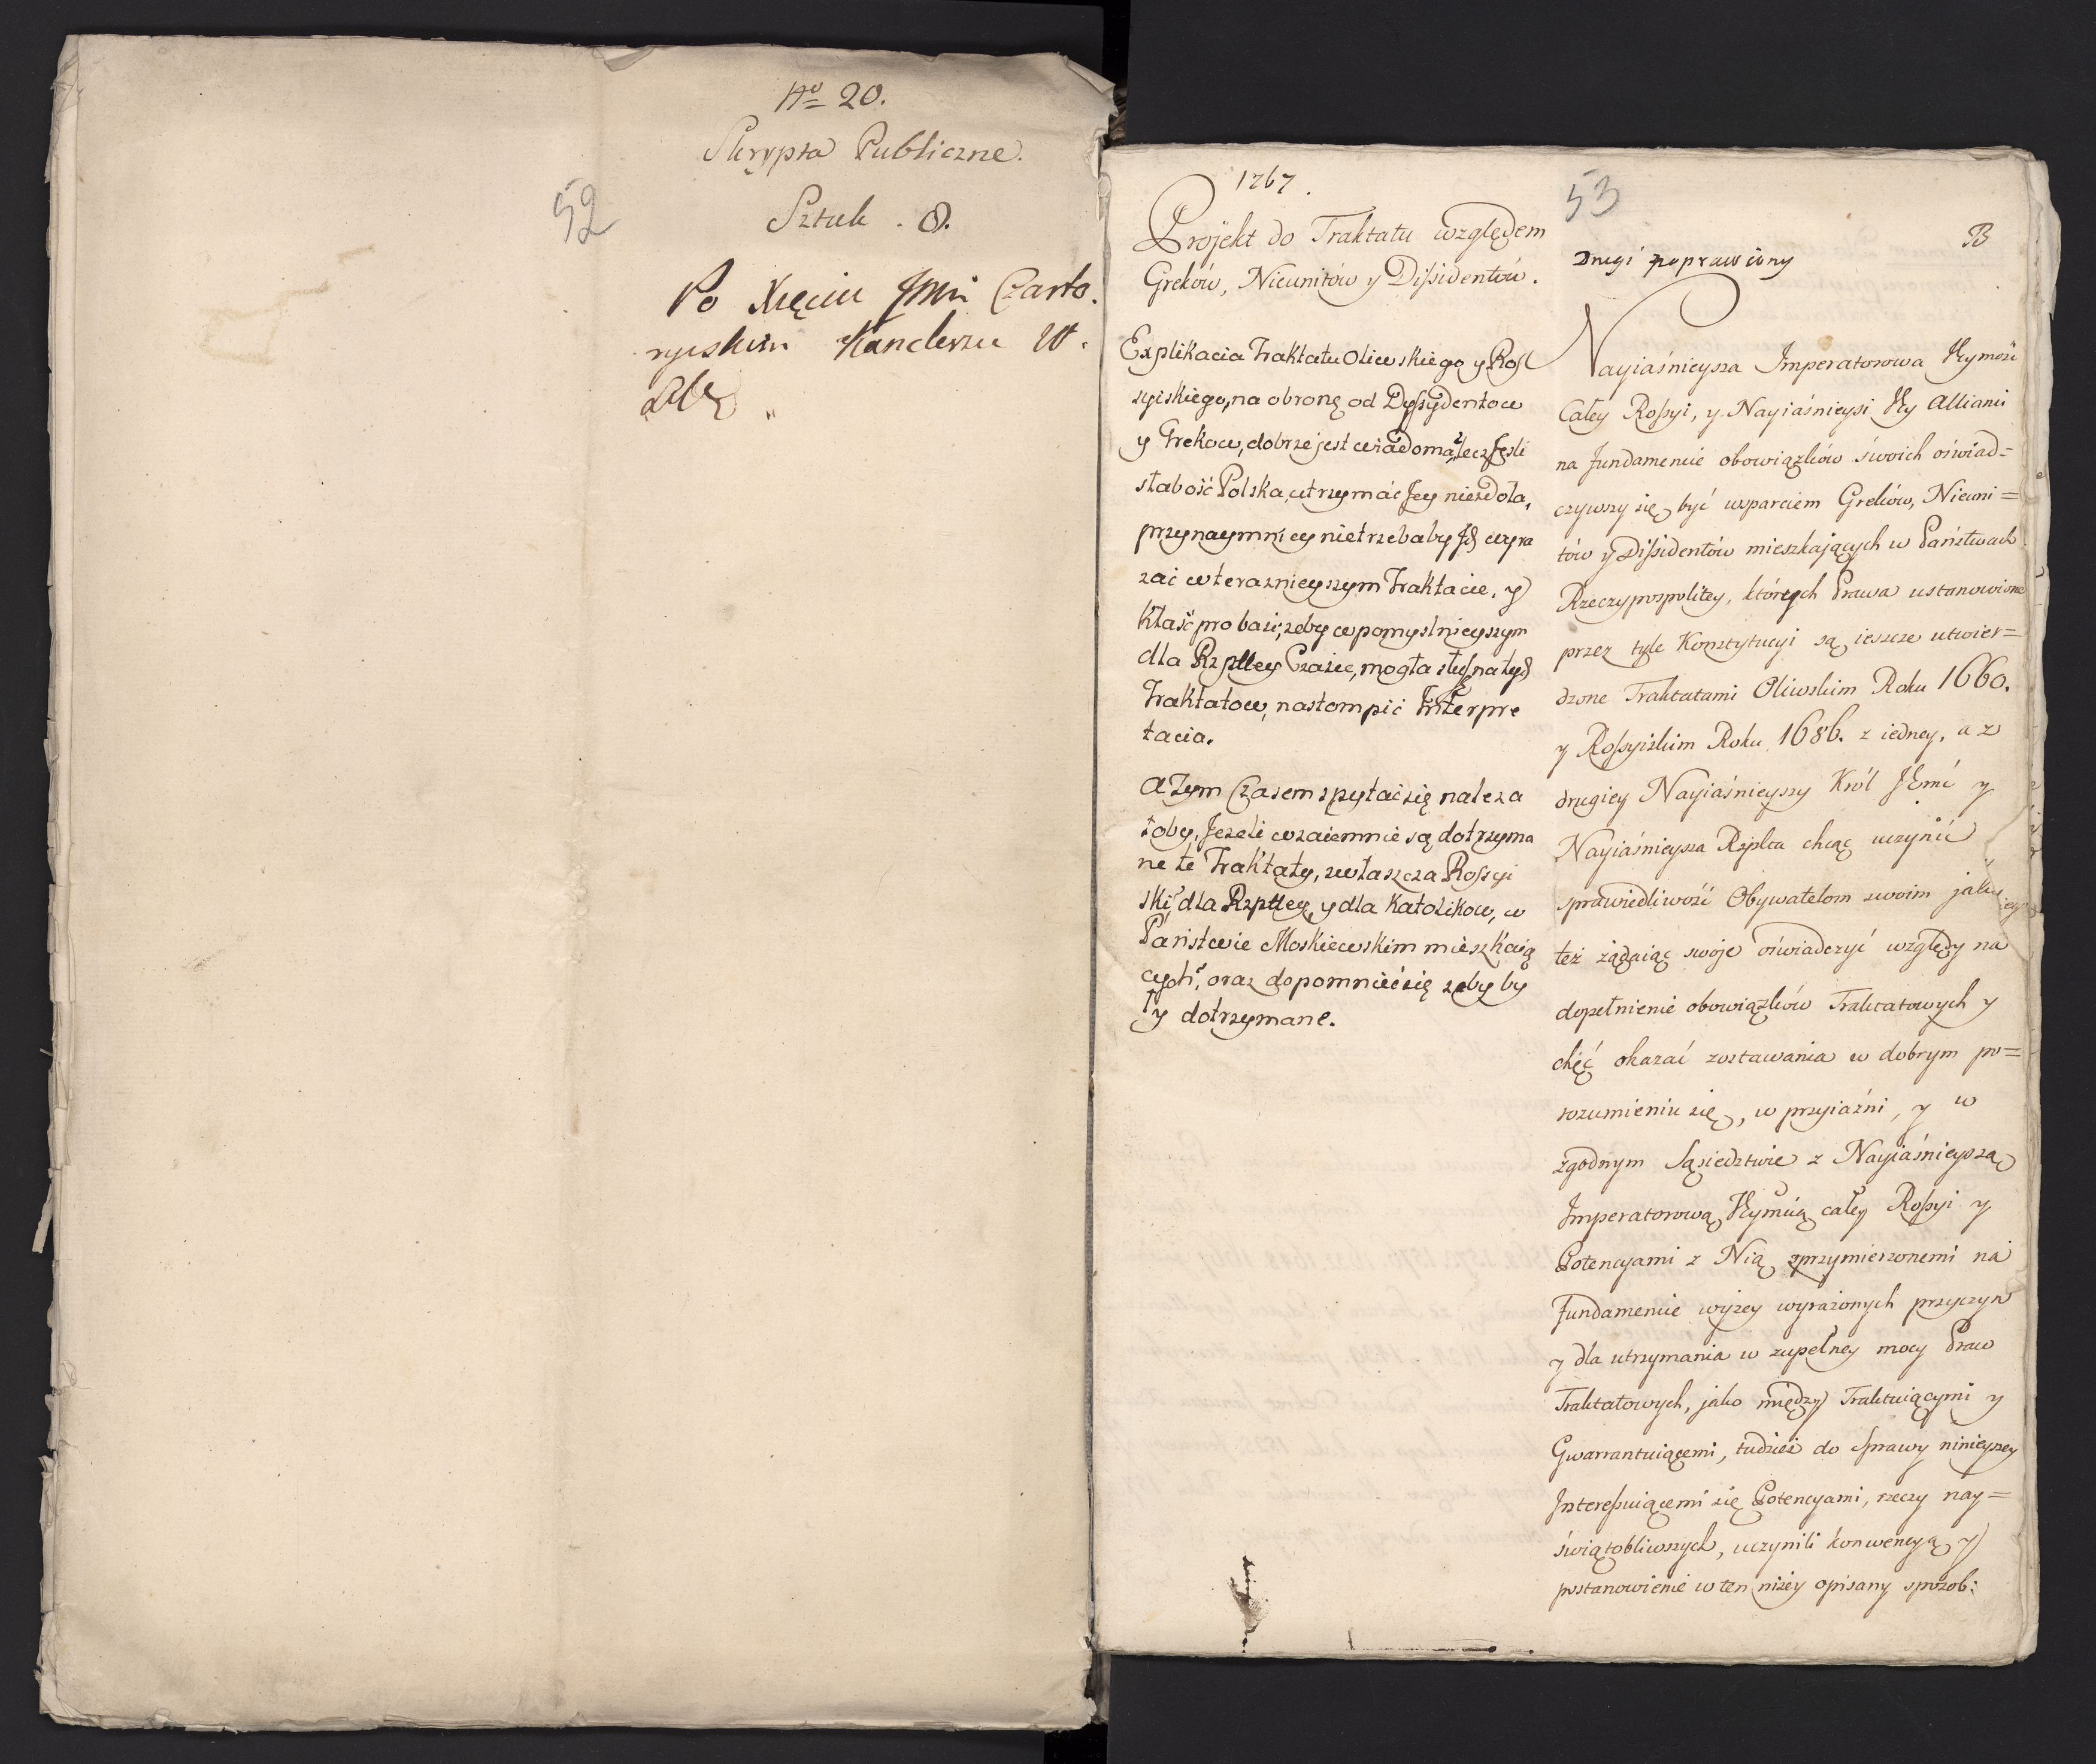 No 20.
Skrypta Publiczne.
52
Sztuk . 8.
Po Xięciu Jmci Czarto.
ryiskim Kanclerzu W.
1767.
Projekt do Traktatu względem
Greków, Nieunitów y Dissidentów.
Explikacia Traktatu Oliwskiego y Ros
syiskiego, na obronę od Dyssydentow
y Grekow, dobrze jest wiadoma, lecz Jeśli
słabość Polska, utrzymać Jey niezdoła,
przynaymniey nietrzebaby Ję wyra
zać w teraznieyszym Traktacie, y
kłaść pro basi, zeby w pomyslnieyszym
dla Rzpltey Czasie, mogła słuszna tyċh
Traktatow, nastompić Interpre
tacia.
A Tym Czasem spytać się naleza
łoby, Jezeli wzaiemnie są dotrzyma
ne te Traktaty, zwłaszcza Rossyi
ski, dla Rzpltey, y dla Katolikow, w
Państwie Moskiewskim mieszkaią
cych, oraz dopomnieć się zeby by
ły dotrzymane.
53
B
Drugi poprawiony
Nayiaśnieysza Imperatorowa Jeymość
Całey Rossyi, y Nayiaśnieysi Jey Allianci
na fundamencie obowiązków swoich oświad=
czywszy się być wsparciem Greków, Nieuni=
tów y Dissidentów mieszkaiących w Państwach
Rzeczypospolitey, których Prawa ustanowione
przez tyle Konstytucyi są ieszcze utwier=
dzone Traktatami Oliwskim Roku 1660.
y Rossyiskim Roku 1686. z iedney, a z
drugiey Nayiaśnieyszy Król JEmć y
Nayiaśnieysza Rzplta chcąc uczynić
sprawiedliwość Obywatelom swoim jako
też żądaiąc swoje oświadczyć względy na
dopełnienie obowiązków Traktatowych y
chęć okazać zostawania w dobrym po=
rozumieniu się, w przyiaźni, y w
zgodnym Sąsiedztwie z Nayiaśnieyszą
Imperatorową Jeymcią całey Rossyi y
Potencyami z Nią sprzymierzonemi na
fundamencie wyżey wyrażonych przyczyn
y dla utrzymania w zupełney mocy Praw
Traktatowych, jako między Traktuiącymi y
Gwarrantuiącemi, tudzież do Sprawy ninieyszey
Interessuiącemi się Potencyami, rzeczy nay=
świątobliwszych, uczynili konwencyą y
postanowienie w ten niżey opisany sposób: